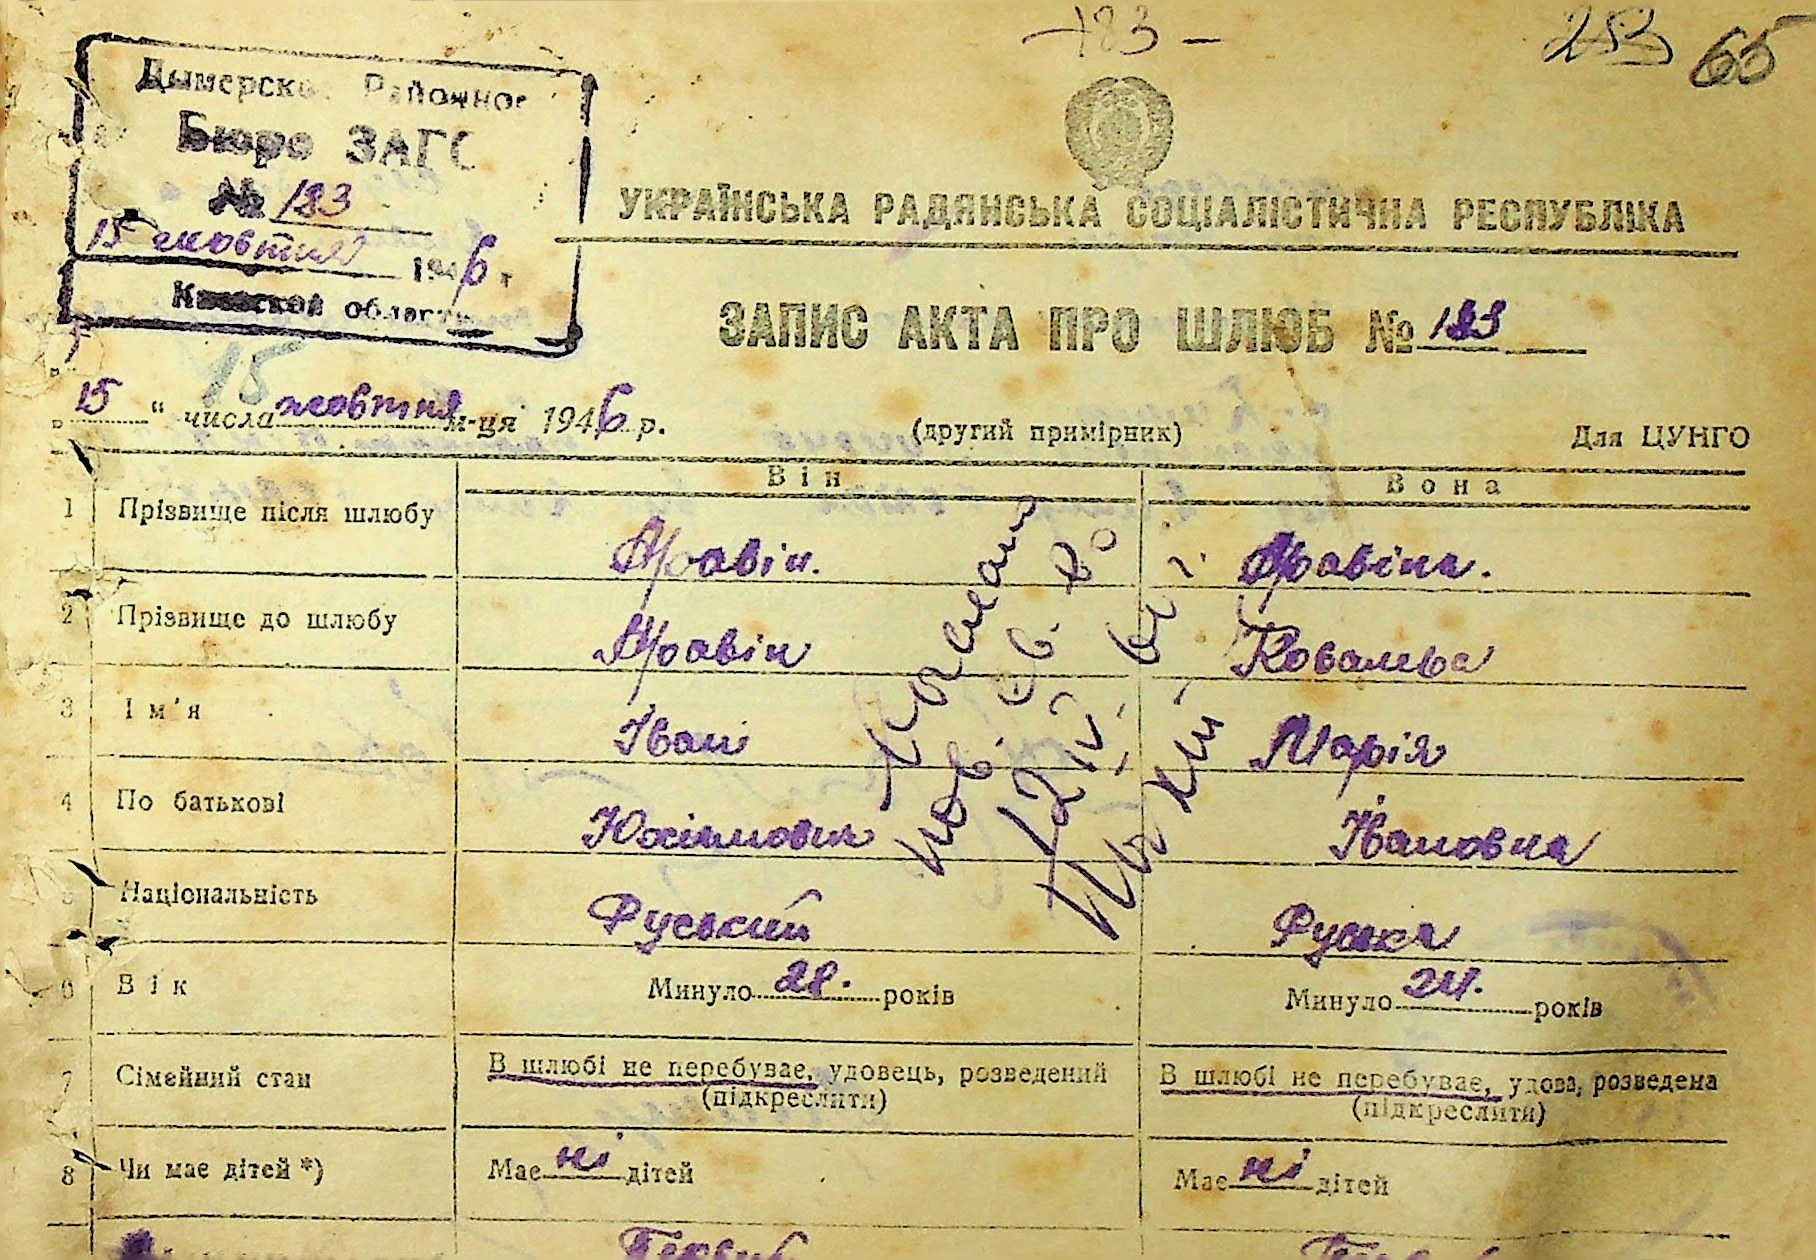 183 -
253 65
Дымерское Районное
Бюро ЗАГС
№ 183
15 жовтня 1946 г
Киевской области
УКРАЇНСЬКА РАДЯНСЬКА СОЦІАЛІСТИЧНА РЕСПУБЛІКА
ЗАПИС АКТА ПРО ШЛЮБ № 183
15
„ 15 “ числа жовтня м-ця 1946 р.
(другий примірник) Для ЦУНГО
Він Вона
1 Прізвище після шлюбу
2 Прізвище до шлюбу
3 Ім'я Іван Марія
4 По батькові Юхимович Івановна
5 Національність Руський Руська
6 Вік Минуло 28. років Минуло 24. років
7 Сімейний стан В шлюбі не перебуває, удовець, розведений В шлюбі не перебуває, удова, розведена
(підкреслити) (підкреслити)
8 Чи має дітей *) Має ні дітей Має ні дітей